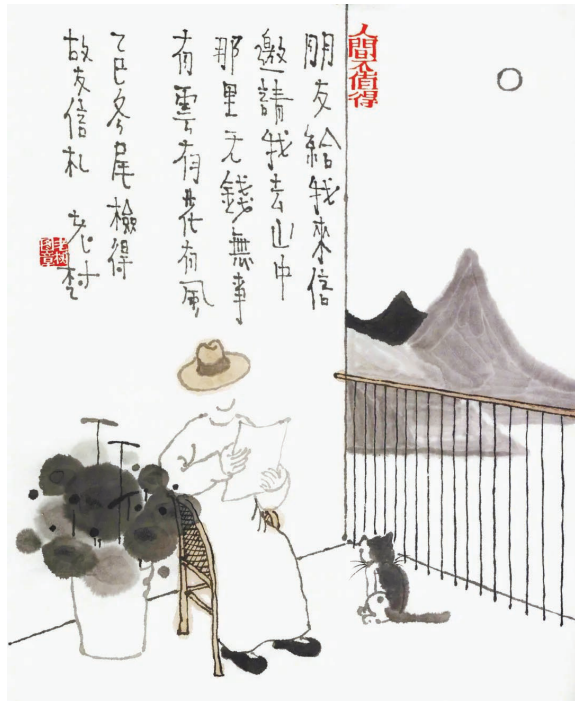 人間不值得
朋友給我來信
邀請我去山中
那里无錢無事
有雲有花有風
乙巳冬尾檢得
故友信札 老村